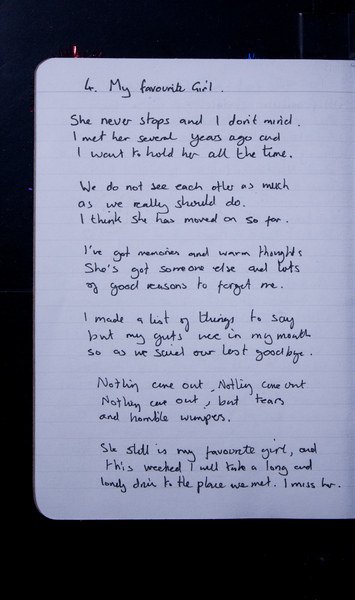 4. My favourite Girl.
She never stops and I don't mind.
I met her several years ago and
I want to hold her all the time.
We do not see each other as much
as we really should do.
I think she has moved on so far.
I've got memories and warm thoughts
She's got someone else and lots
of good reasons to forget me.
I made a list of things to say
but my guts were in my mouth
so as we said our last goodbye.
Nothing came out, Nothing came out
Nothing came out, but tears
and horrible whimpers.
She still is my favourite girl, and
this weekend I will take a long and
lonely drive to the place we met. I miss her.